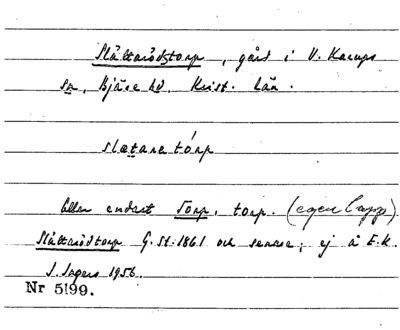 Slåttarödstorp, gård i V. Karups
sn, Bjäre hd. Krist. län.
slætaratórp
Eller endast Torp, torp. (egen lapp)
Slättarödtorp G.St. 1861 och senare; ej å E.K.
J. Ingers 1956.
Nr 5199.